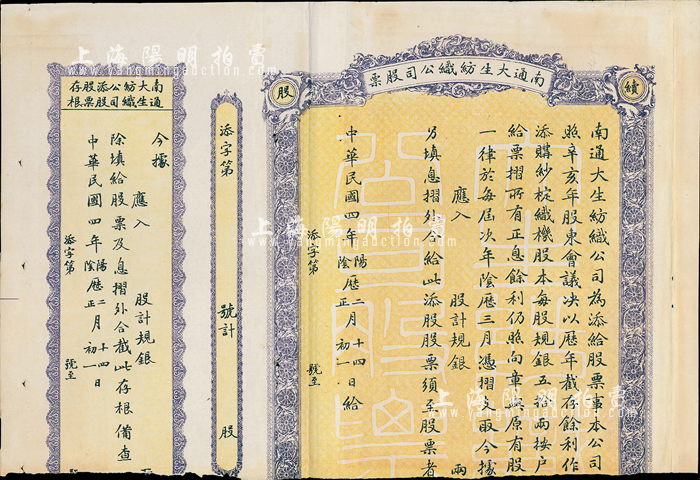 續
股
南通大生紡織公司股票
南通大生紡織公司為添給股票事本公司
照辛亥年股東會議决以歷年截存餘利作
添購紗梭織機股本每股規銀五拾兩按户
給票摺所有正息餘利仍照向章與原有股
一律於每屆次年陰歷三月憑摺支取今據
應入 股計規銀 兩
另填息摺外合給此添股股票須至股票者
中華民國四年陽陰歷二正月十四初一日給
添字第 號至
添字第 號計 股
南通大生紡織公司添股股票存根
今據
應入 股計規銀
除填給股票及息摺外合截此存根備查
中華民國四年陽陰歷二正月十四初一日
添字第 號至
上海陽明拍賣
www.yangmingauction.com